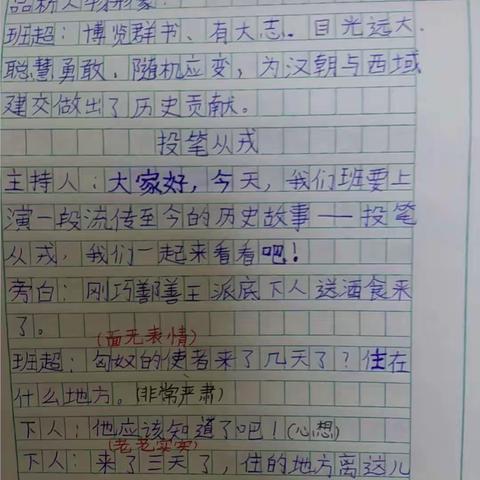 品析人物形象：
班超：博览群书、有大志。目光远大.
聪慧勇敢，随机应变，为汉朝与西域
建交做出了历史贡献。
投笔从戎
主持人：大家好，今天，我们班要上
演一段流传至今的历史故事——投笔
从戎，我们一起来看看吧！
旁白：刚巧鄯善王派底下人送酒食来
了。
(面无表情)
班超：匈奴的使者来了几天了？住在
什么地方。(非常严肃)
下人：他应该知道了吧！(心想)
(老老实实)
下人：来了三天了，住的地方离这儿